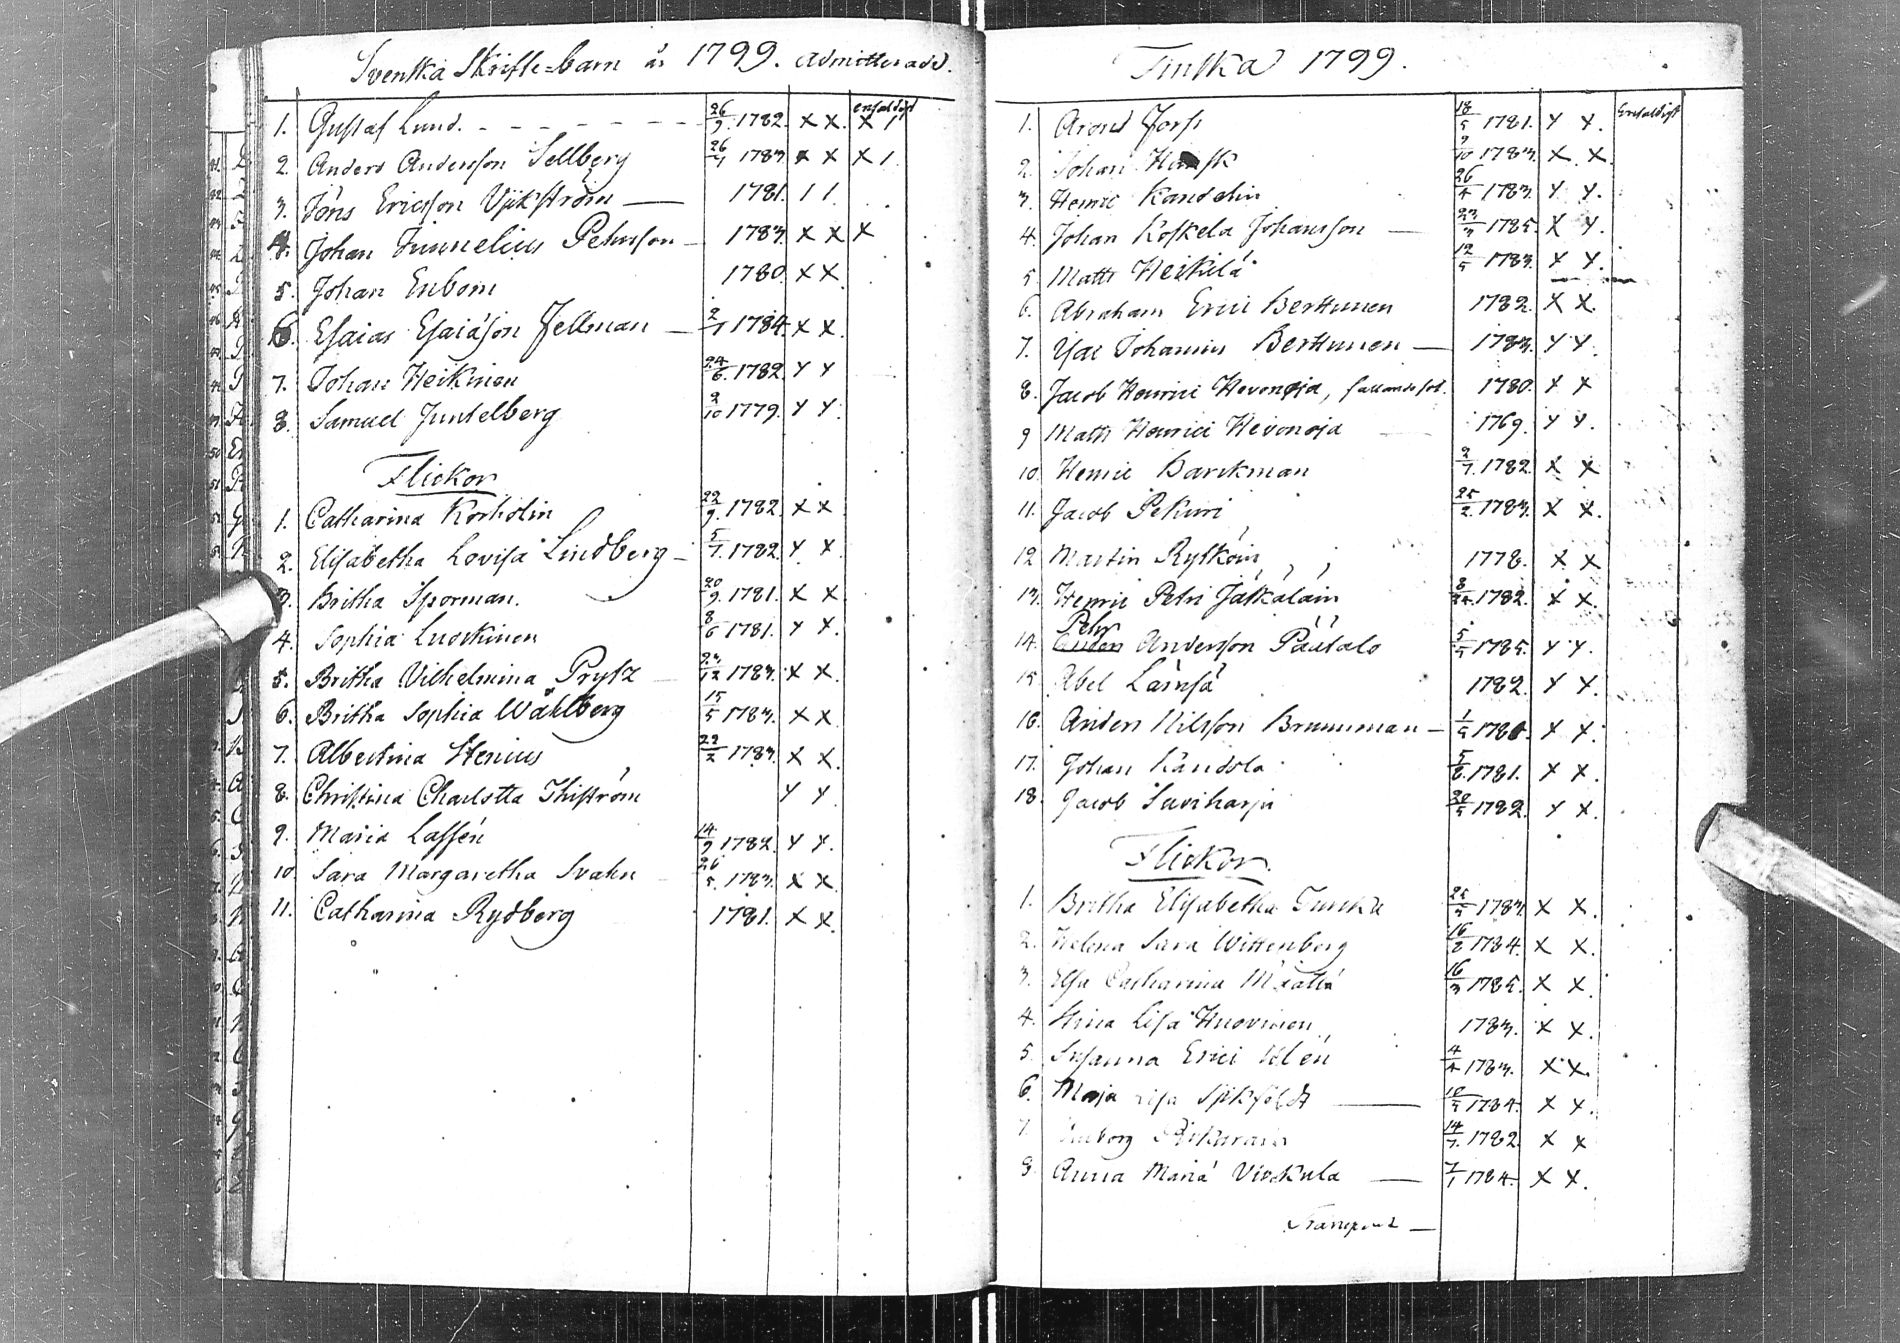 Svenska Skrifte=barn år 1799. admitterade.
enfaldigt
1. Gustaf Lund. - - - - - - 26/9. 1782. x x. x 1
2. Anders Andersson Sellberg 26/1 1783. x x x 1.
3. Jöns Ericsson Vikström — 1781. 1 1.
4. Johan Finnelius Pehrsson — 1783. x x x
5. Johan Enbom 1780. x x.
6. Esaias Esaiæson Fellman — 2/1 1784. x x.
7. Johan Heikinen 24/6. 1782. x x
8. Samuel Juntelberg 9/10 1779. x x.
Flickor
1. Catharina Korholin 22/9. 1782. x x.
2. Elisabetha Lovisa Lindberg — 5/7. 1782. x x.
3. Britha Sporman. 20/9. 1781. x x
4. Sophia Luoskinen 8/6 1781. x x.
5. Britha Vilhelmina Prytz 23/12 1783. x x.
6. Britha Sophia Wåhlberg 15/5 1783. x x.
7. Albertina Stenius 22/2 1783. x x.
8. Christina Charlotta Thiström x x.
9. Maria Lassén 14/9 1782. x x.
10. Sara Margaretha Svahn 26/5. 1783. x x.
11. Catharina Rydberg 1781. x x.
Finska 1799.
Enfaldigt
1. Arend Forss 18/5 1781. x x.
2. Johan 9/10 1783. x x.
3. Henric Kandelin 26/4 1783. x x.
4. Johan Koskela Johansson — 23/3 1785. x x.
5 Matts Heikilä 12/5 1783. x x.
6. Abraham Erici Berttunen 1782. x x.
7. Isac Johannis Berttunen — 1783. x x.
8. Jacob Henrici Hevonoja, 1780. x x
9 Matts Henrici Hevonoja 1769. x x.
10. Henric Barckman 2/7. 1782. x x
11. Jacob Pekuri 25/2. 1783. x x.
12 Martin Rytköin 1778. x x
13. Henric Petri Jätkäläin 8/24. 1782. x x.
Pehr
14. Anders Andersson Päätalo 5/5 1785. x x.
15 Abel Lämsä 1782. x x.
16. Anders Nilsson Brunnman — 1/5 1780. x x.
17. Johan Kandola 5/8. 1781. x x.
18. Jacob Saviharju 20/5 1782. x x.
Flickor.
1. Britha Elisabetha Turska 25/5 1783. x x.
2. Helena Sara Wittenberg 16/2 1784. x x.
3. Elsa Catharina 16/3 1785. x x.
4. Stina Lisa Huovinen 1783. x x.
5. Susanna Erici 4/4 1783. x x.
6. Maja Lisa — 18/5 1784. x x.
7. 14/7. 1782. x x
8. Anna Maria Virkula — 7/1 1784. x x.
Transport —